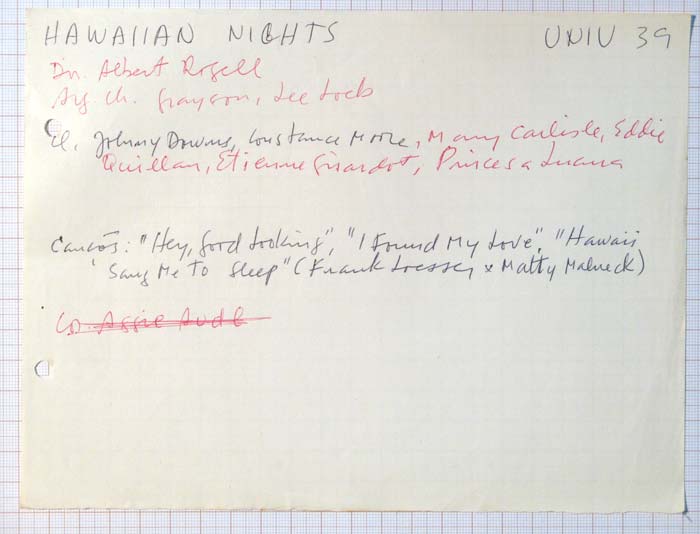 HAWAIIAN NIGHTS UNIV 39
Dn. Albert Rogell
Arg. Ch. Grayson, Lee Loeb
El. Johnny Downs, Constance Moore, Mary Carlisle, Eddie
Quillan, Etienne Girardot, Princesa Luana
Canções: "Hey, Good Looking", "I Found My Love", "Hawaii
Sang Me To Sleep" (Frank Loesser x Matty Malneck)